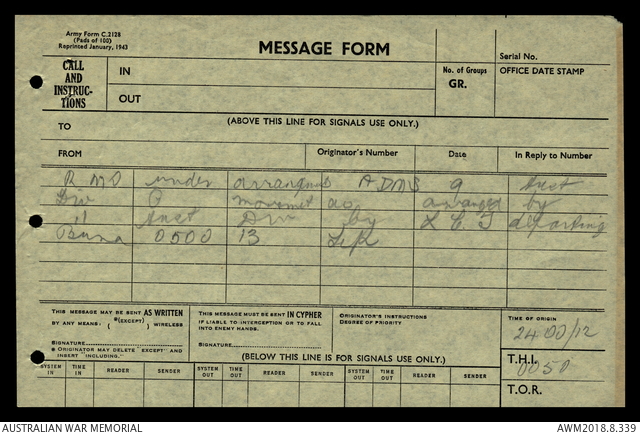 Army Form C.2128
(Pads of 100)
Reprinted January, 1943
MESSAGE FORM
Serial No.
CALL AND INSTRUC- TIONS
IN
No. of Groups
GR.
OFFICE DATE STAMP
OUT
(ABOVE THIS LINE FOR SIGNALS USE ONLY.)
TO
FROM
Originator's Number
Date
In Reply to Number
RMO under ADMS 9 Aust
Div movement as arranged by
11 Aust Div by LCT departing
Buna 0500 13
THIS MESSAGE MAY BE SENT AS WRITTEN
BY ANY MEANS. ( *(EXCEPT) ) WIRELESS
SIGNATURE
* ORIGINATOR MAY DELETE "EXCEPT" AND INSERT "INCLUDING."
THIS MESSAGE MUST BE SENT IN CYPHER
IF LIABLE TO INTERCEPTION OR TO FALL INTO ENEMY HANDS.
SIGNATURE
ORIGINATOR'S INSTRUCTIONS
DEGREE OF PRIORITY
TIME OF ORIGIN
2400/12
(BELOW THIS LINE IS FOR SIGNALS USE ONLY.)
T.H.I.
0050
SYSTEM IN
TIME IN
READER
SENDER
SYSTEM OUT
TIME OUT
READER
SENDER
SYSTEM OUT
TIME OUT
READER
SENDER
T.O.R.
AUSTRALIAN WAR MEMORIAL
AWM2018.8.339